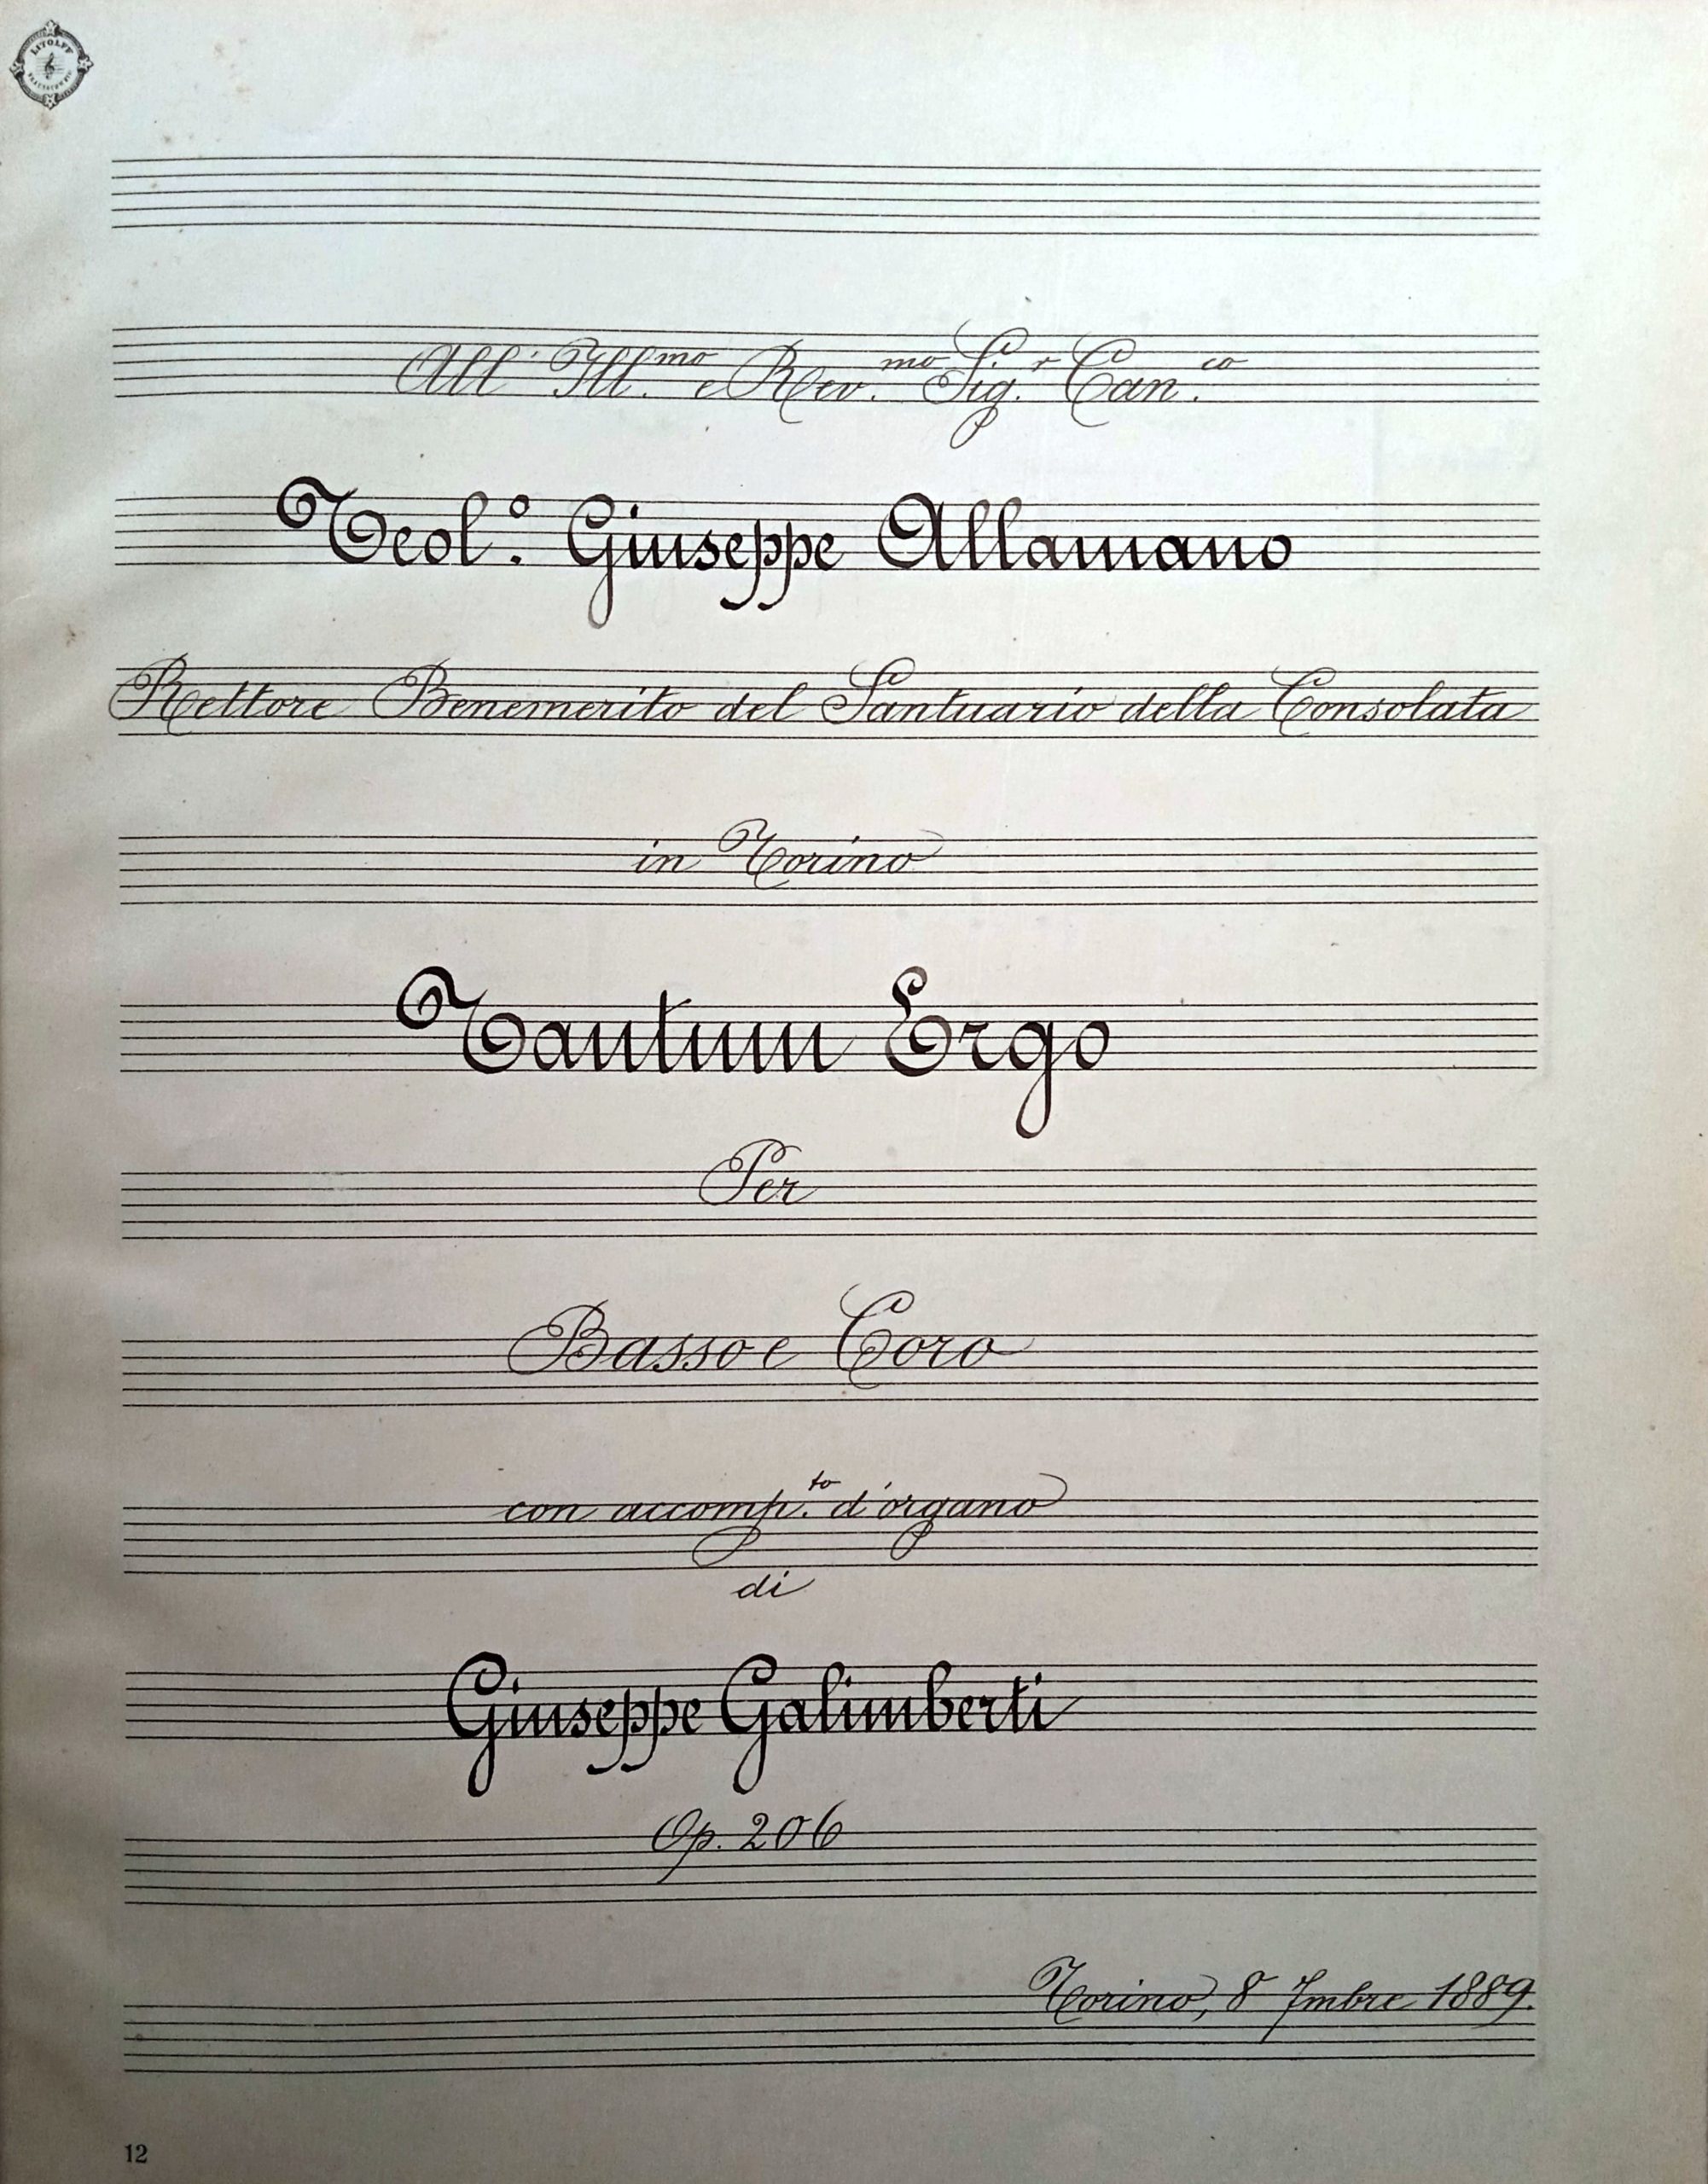 LITOLFF
All' Ill.mo e Rev.mo Sig.r Can.co
Teol.o Giuseppe Allamano
Rettore Benemerito del Santuario della Consolata
in Torino
Tantum Ergo
Per
Basso e Coro
con accomp.to d'organo
di
Giuseppe Galimberti
Op. 206
Torino, 8 7mbre 1889.
12